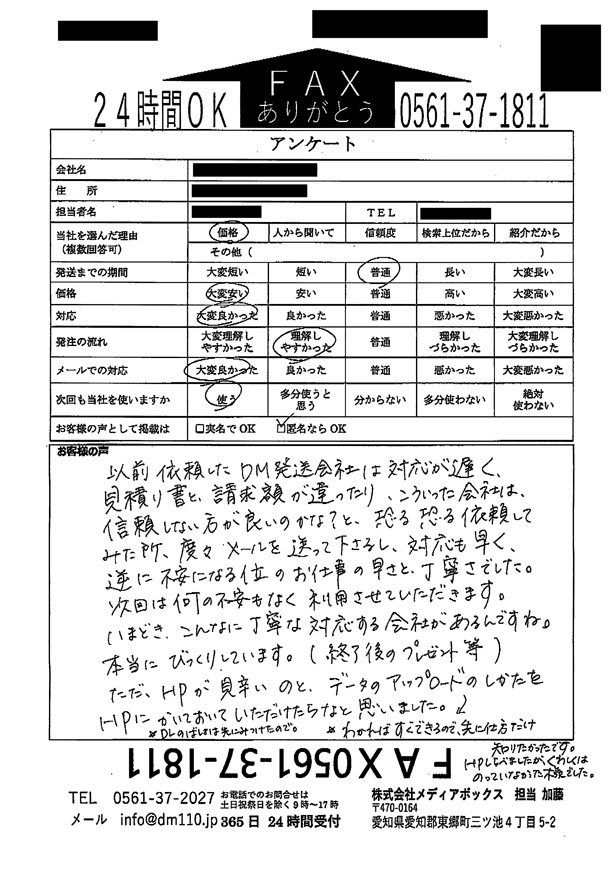 FAX
ありがとう
24時間OK
0561-37-1811
アンケート
会社名
住 所
担当者名 TEL
当社を選んだ理由(複数回答可) 価格 人から聞いて 信頼度 検索上位だから 紹介だから
その他( )
発送までの期間 大変短い 短い 普通 長い 大変長い
価格 大変安い 安い 普通 高い 大変高い
対応 大変良かった 良かった 普通 悪かった 大変悪かった
発注の流れ 大変理解しやすかった 理解しやすかった 普通 理解しづらかった 大変理解しづらかった
メールでの対応 大変良かった 良かった 普通 悪かった 大変悪かった
次回も当社を使いますか 使う 多分使うと思う 分からない 多分使わない 絶対使わない
お客様の声として掲載は □実名でOK ☑匿名ならOK
お客様の声
以前依頼したDM発送会社は対応が遅く、
見積り書と、請求額が違ったり、こういった会社は、
信頼しない方が良いのかな?と、恐る恐る依頼して
みた所、度々メールを送って下さるし、対応も早く、
逆に不安になる位のお仕事の早さと、丁寧さでした。
次回は何の不安もなく利用させていただきます。
いまどき、こんなに丁寧な対応する会社があるんですね。
本当にびっくりしています。(終了後のプレゼント等)
ただ、HPが見辛いのと、データのアップロードのしかたを
HPにかいておいていただけたらなと思いました。
※DLのばしょは先にみつけたので。
※わかればすぐできるので、先に仕方だけ
知りたかったです。
HPしらべましたが、くわしくは
のっていなかった様でした。
FAX0561-37-1811
TEL 0561-37-2027 お電話でのお問合せは
土日祝祭日を除く9時〜17時
メール info@dm110.jp 365日 24時間受付
株式会社メディアボックス 担当 加藤
〒470-0164
愛知県愛知郡東郷町三ツ池4丁目5-2